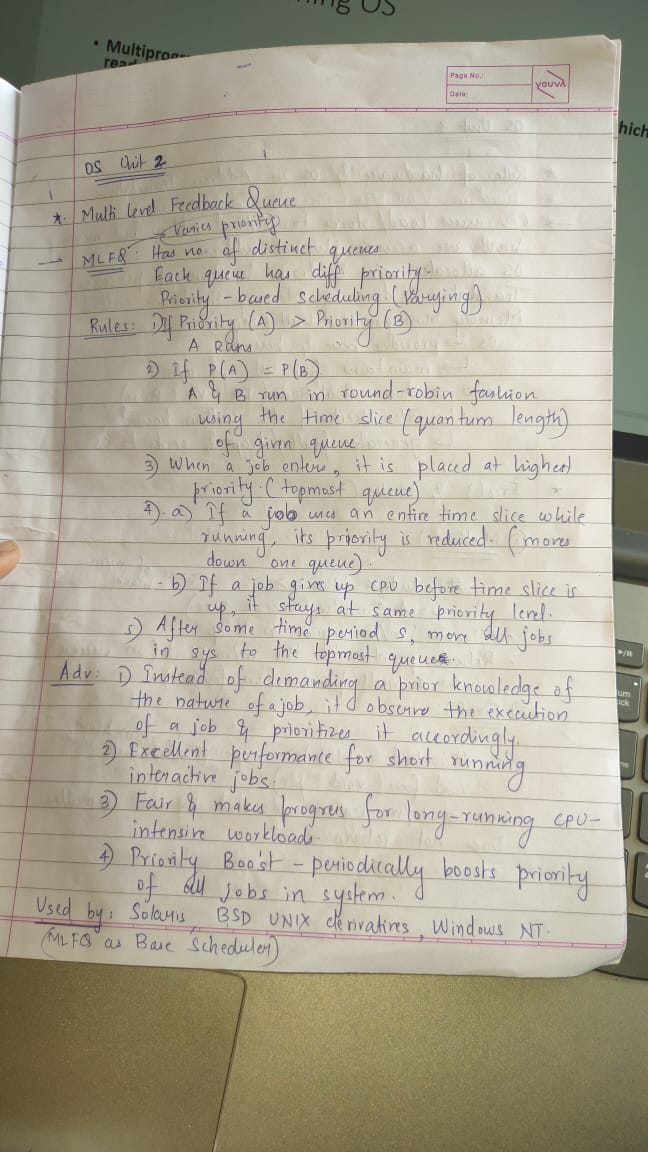 ning OS
• Multiprogr
read
hich
Page No.:
Date:
YOUVA
OS Unit 2
* Multi level Feedback Queue
Varies priority
→ MLFQ: Has no. of distinct queues
Each queue has diff. priority.
Priority - based scheduling (Varying)
Rules: 1) If Priority (A) > Priority (B)
A Runs
2) If P(A) = P(B)
A & B run in round-robin fashion
using the time slice (quantum length)
of given queue.
3) When a job enters, it is placed at highest
priority. (topmost queue)
4). a) If a job uses an entire time slice while
running, its priority is reduced. (moves
down one queue).
- b) If a job gives up CPU before time slice is
up, it stays at same priority level.
5) After some time period S, move all jobs
in sys to the topmost queue.
Adv: 1) Instead of demanding a prior knowledge of
the nature of a job, it observe the execution
of a job & prioritizes it accordingly.
2) Excellent performance for short running
interactive jobs.
3) Fair & makes progress for long-running CPU-
intensive workloads.
4) Priority Boost - periodically boosts priority
of all jobs in system.
Used by: Solaris, BSD UNIX derivatives, Windows NT.
(MLFQ as Base Scheduler)